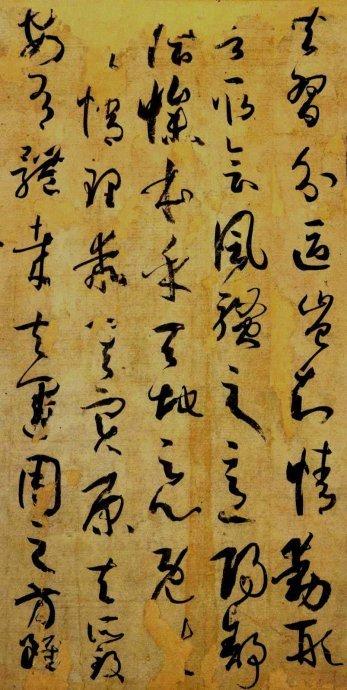 共習分區豈知情動形
言取會風騷之意陽舒
陰慘本乎天地之心既失
其情理乖其實原夫所致
安有體哉夫運用之方雖